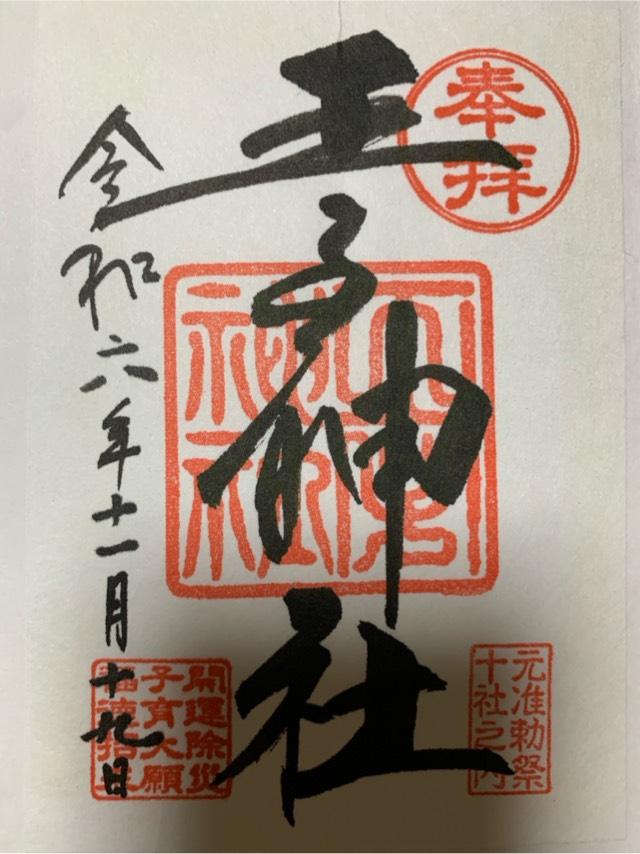 奉拝
王子神社
元准勅祭
十社之内
開運除災
子育大願
令和六年十一月十九日